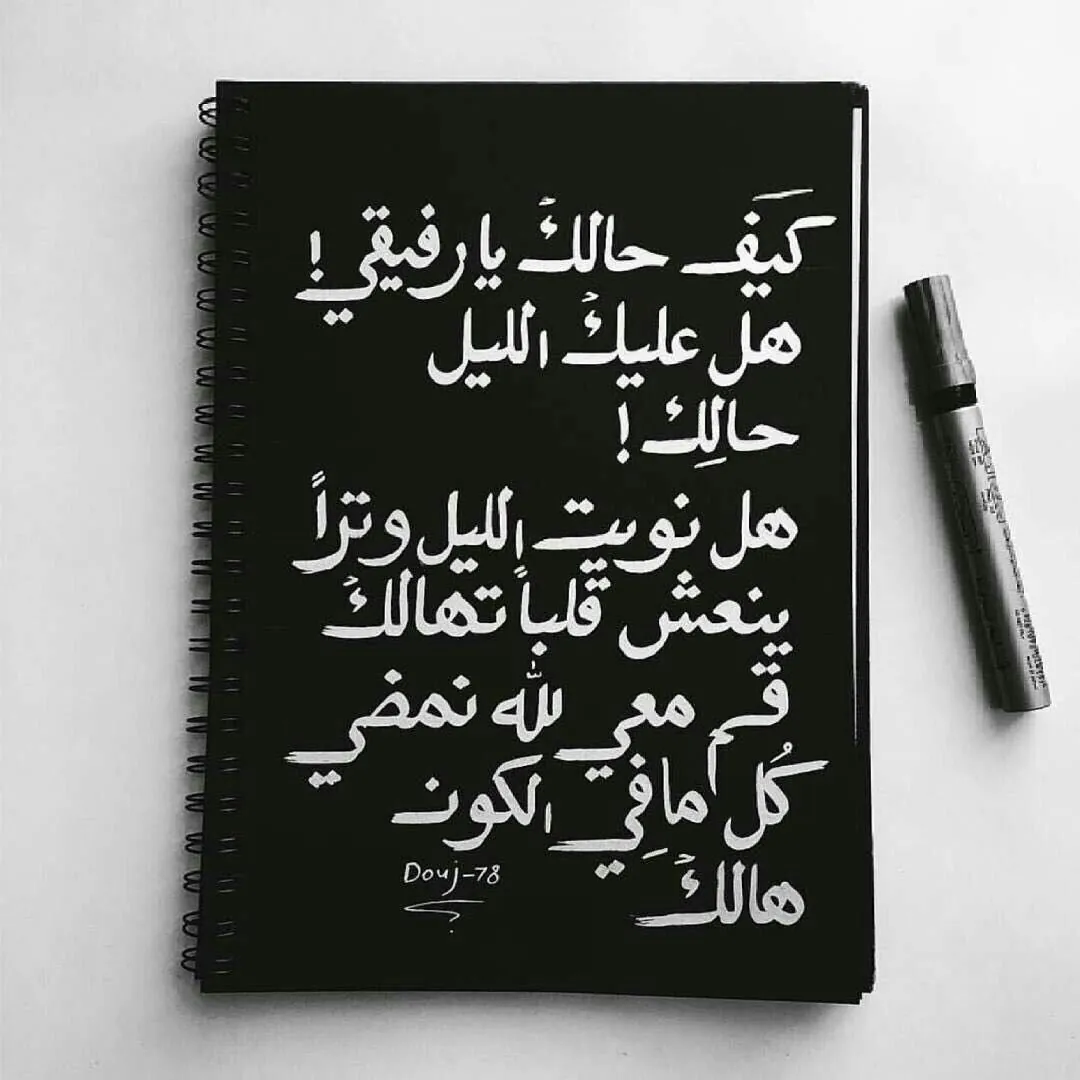 كَيَف حالكَ يا رفيقي !
هل عليكَ الليل
حالِك !
هل نويت الليل وتراً
ينعش قلباً تهالكَ
قم معي لله نمضي
كُل مافِي الكون
هالكَ
Douj-78